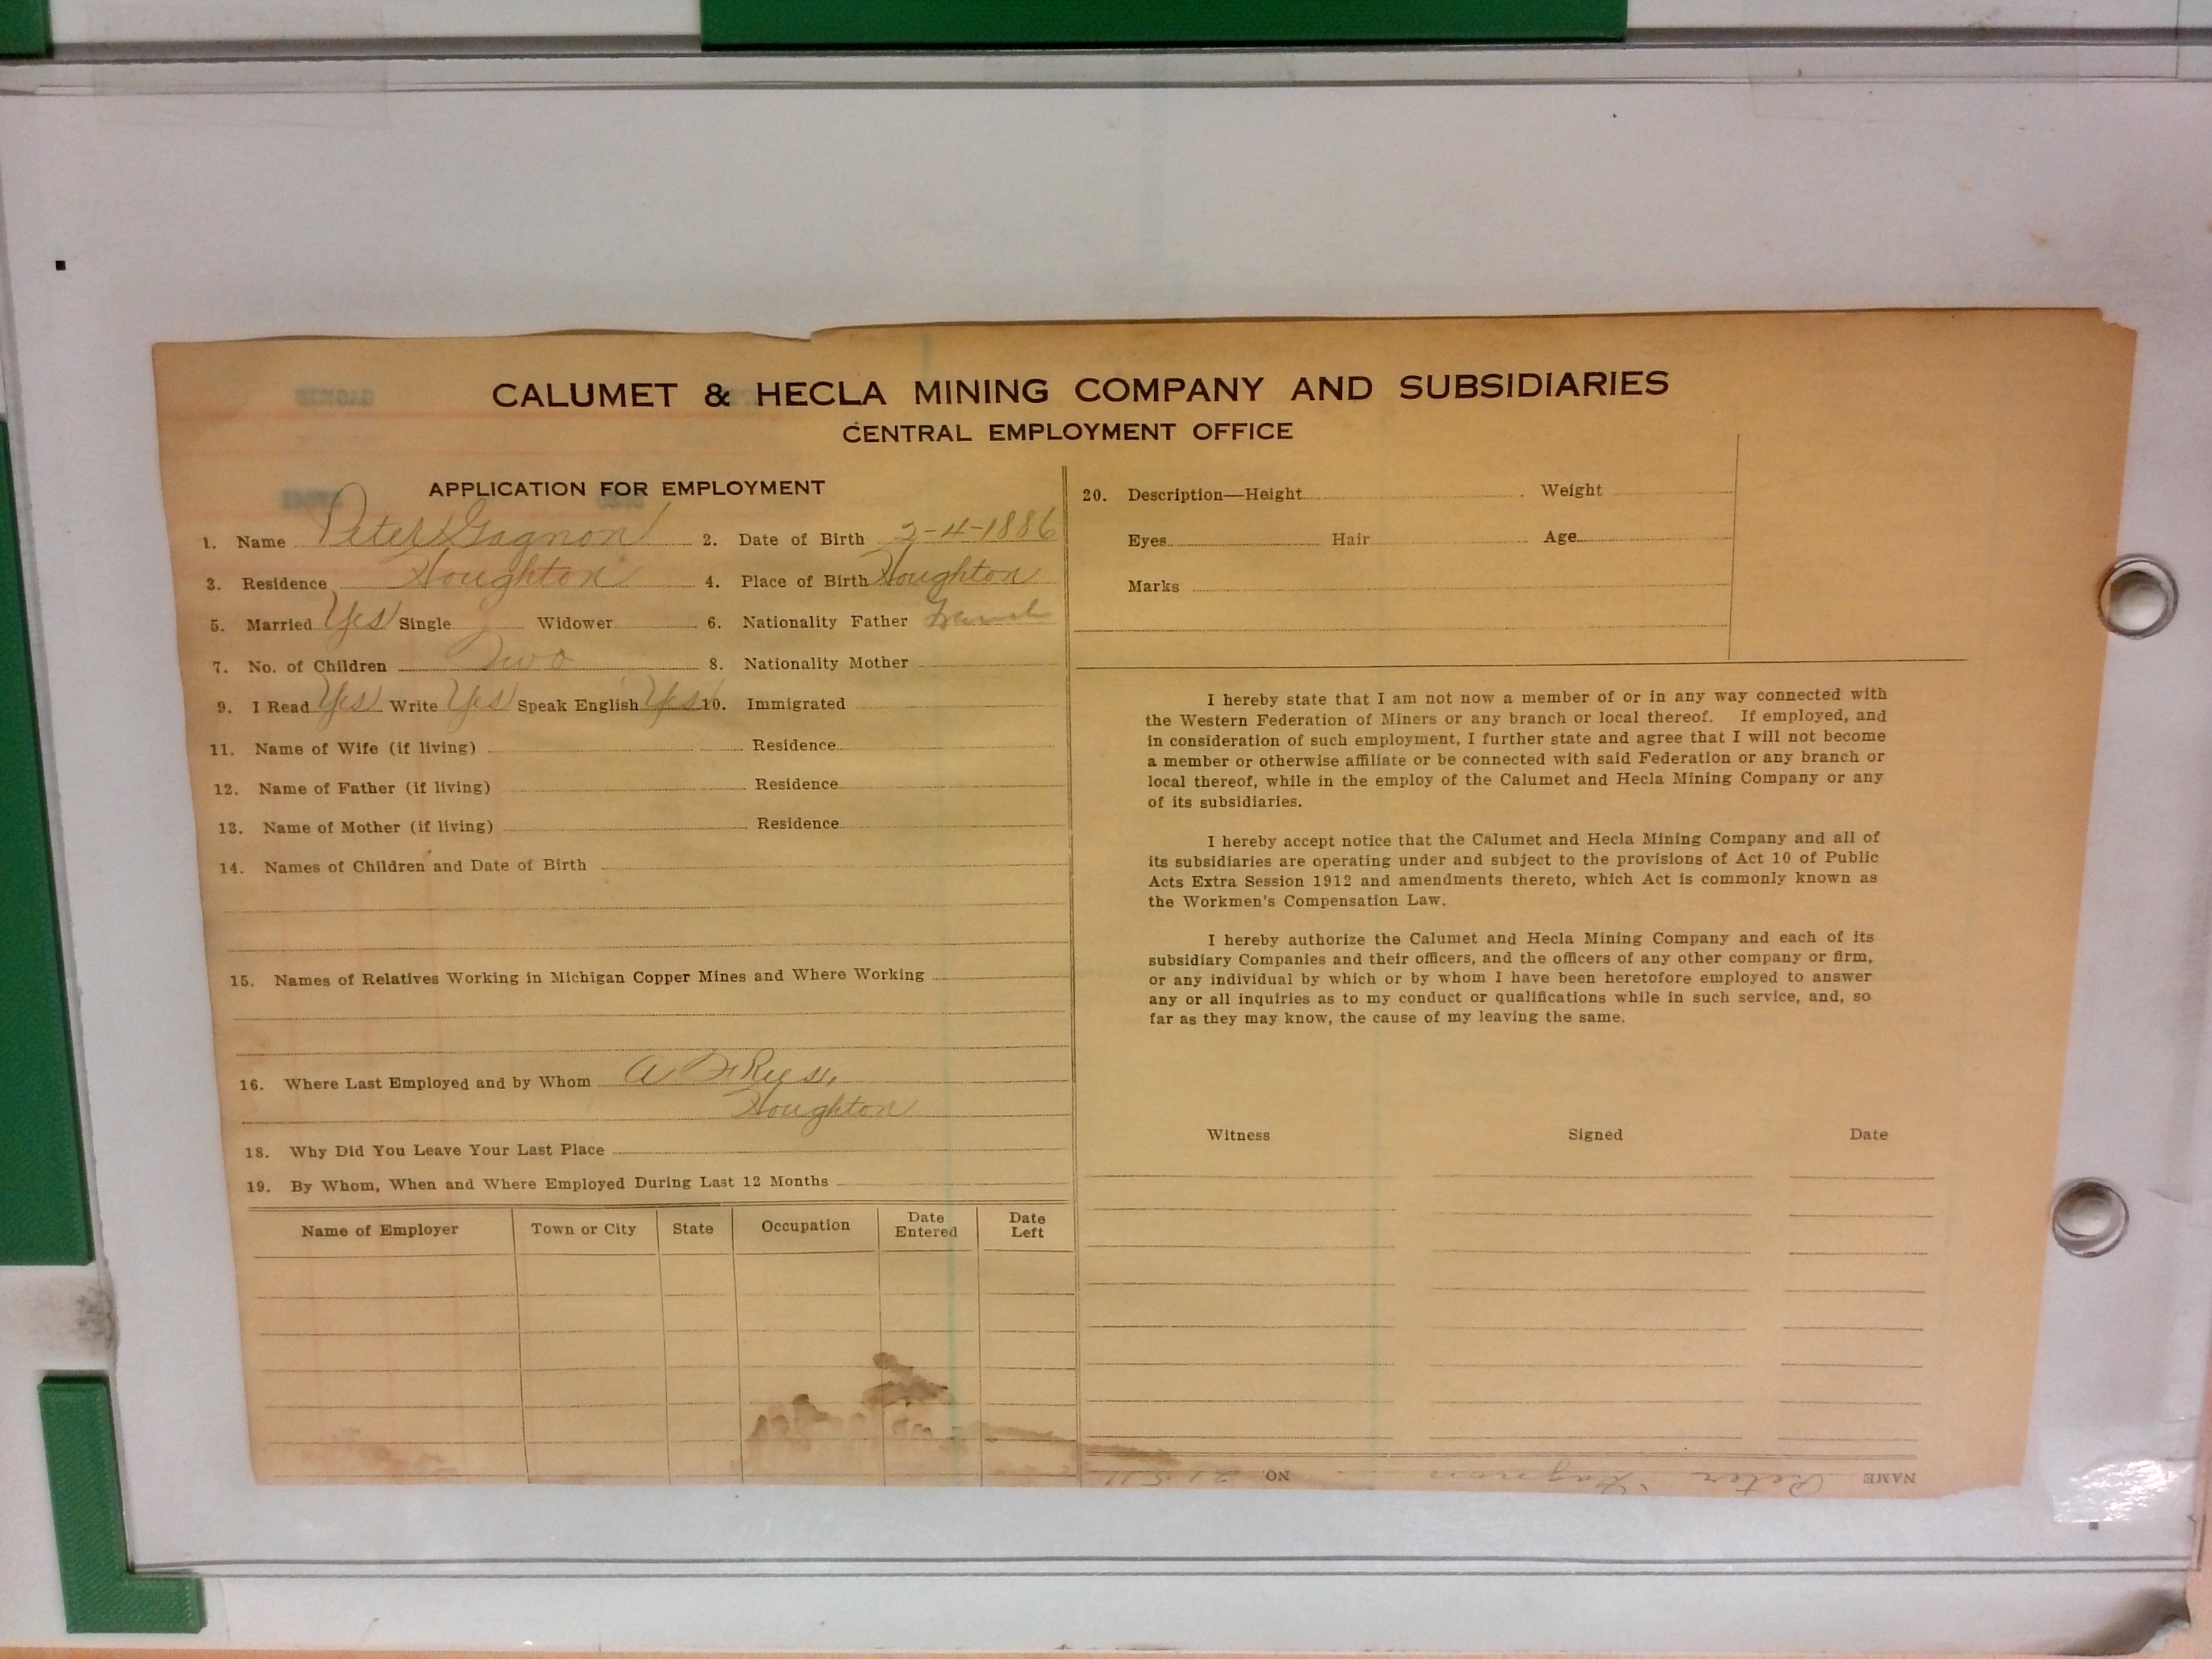 CALUMET & HECLA MINING COMPANY AND SUBSIDIARIES
CENTRAL EMPLOYMENT OFFICE
APPLICATION FOR EMPLOYMENT
1. Name Peter Gagnon 2. Date of Birth 2-4-1886
3. Residence Houghton 4. Place of Birth Houghton
5. Married Yes Single Widower 6. Nationality Father French
7. No. of Children Two 8. Nationality Mother
9. I Read Yes Write Yes Speak English Yes 10. Immigrated
11. Name of Wife (if living) Residence
12. Name of Father (if living) Residence
13. Name of Mother (if living) Residence
14. Names of Children and Date of Birth
15. Names of Relatives Working in Michigan Copper Mines and Where Working
16. Where Last Employed and by Whom A
Houghton
18. Why Did You Leave Your Last Place
19. By Whom, When and Where Employed During Last 12 Months
Name of Employer Town or City State Occupation Date Entered Date Left
20. Description—Height Weight
Eyes Hair Age
Marks
I hereby state that I am not now a member of or in any way connected with
the Western Federation of Miners or any branch or local thereof. If employed, and
in consideration of such employment, I further state and agree that I will not become
a member or otherwise affiliate or be connected with said Federation or any branch or
local thereof, while in the employ of the Calumet and Hecla Mining Company or any
of its subsidiaries.
I hereby accept notice that the Calumet and Hecla Mining Company and all of
its subsidiaries are operating under and subject to the provisions of Act 10 of Public
Acts Extra Session 1912 and amendments thereto, which Act is commonly known as
the Workmen's Compensation Law.
I hereby authorize the Calumet and Hecla Mining Company and each of its
subsidiary Companies and their officers, and the officers of any other company or firm,
or any individual by which or by whom I have been heretofore employed to answer
any or all inquiries as to my conduct or qualifications while in such service, and, so
far as they may know, the cause of my leaving the same.
Witness Signed Date
NAME Peter Gagnon NO.